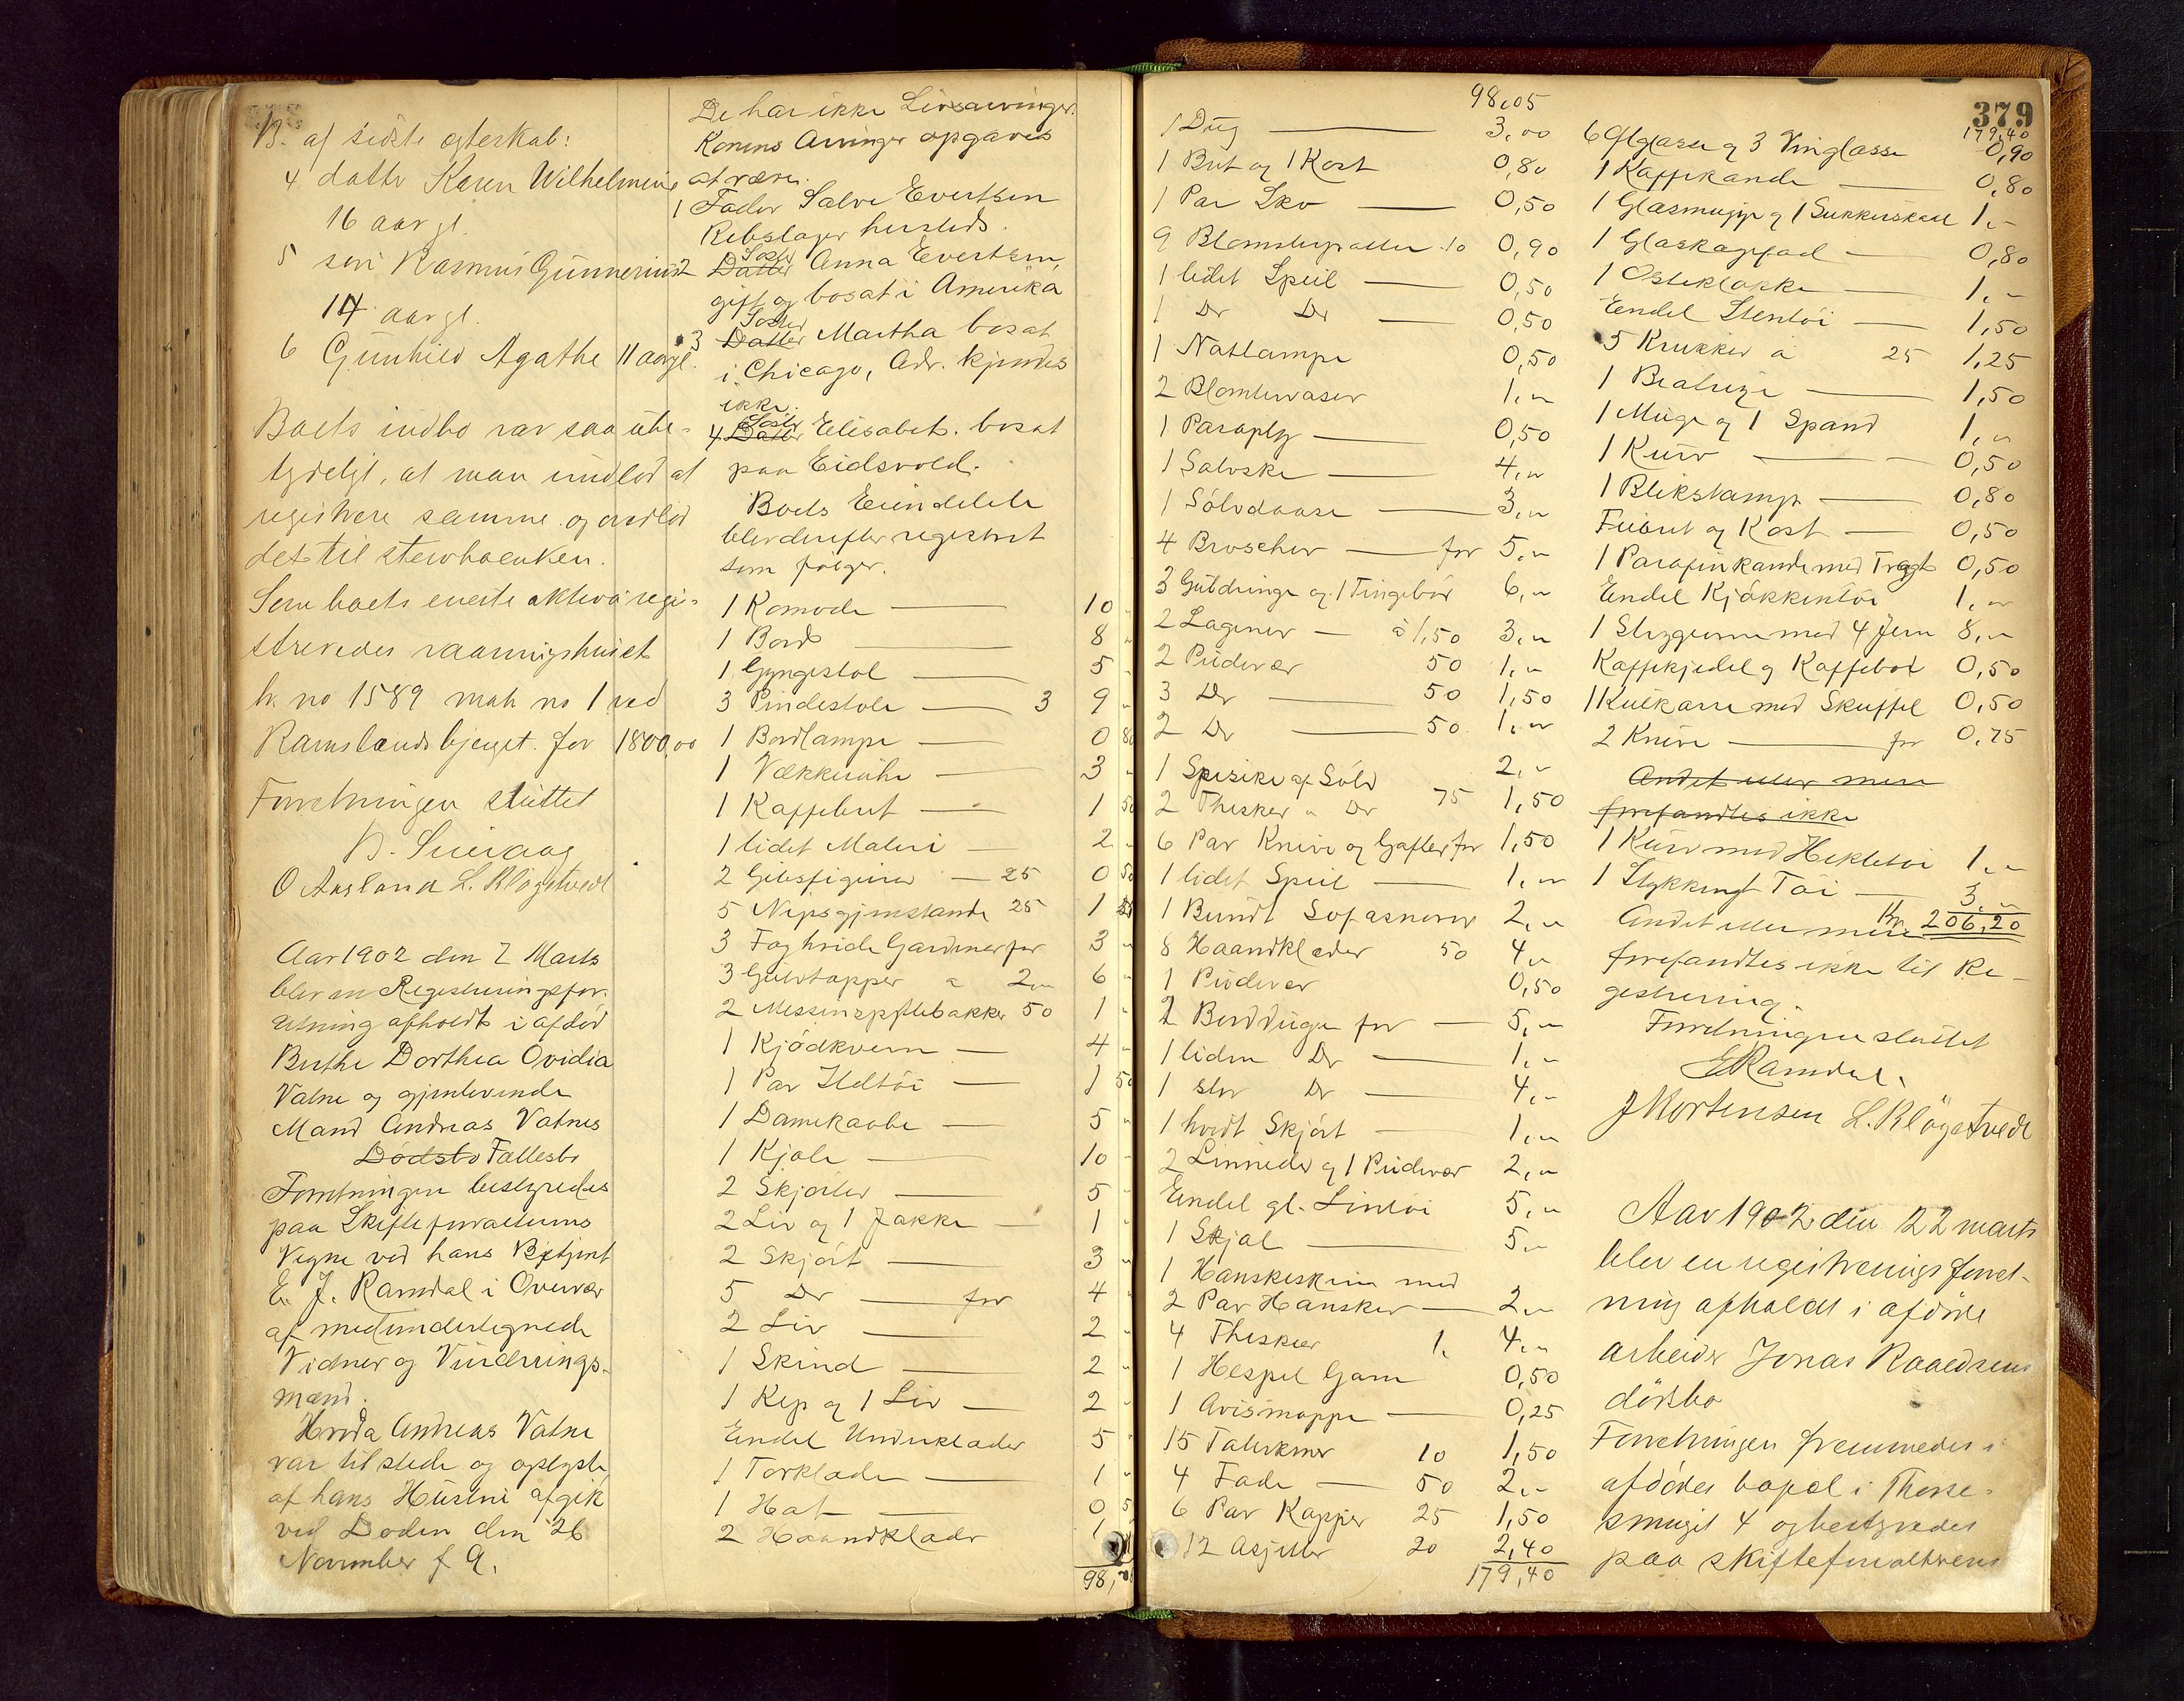 B. af sidste egteskab:
4. datter Karen Wilhelmine
16 aar gl.
5 søn Rasmus Gunnerius
14 aar gl.
6 Gunhild Agathe 11 aar gl.
Boets indbo var saa ube-
tydeligt, at man undlod at
registrere samme og overlod
det til sterboenken.
Som boets eneste aktiva regi-
streredes vaaningshuset
h. no 1589 matr no 1 ved
Ramslandsbjerget for 1800,00
Forretningen sluttet
O Aasland L. Kløgetvedt
Aar 1902 den 7 Marts
blev en Registreringsfor-
retning afholdt i afdød
Berthe Dorthea Ovidia
Vatne og gjenlevende
Mand Andreas Vatnes
Dødsbo Fællesbo
Forretningen bestyredes
paa Skifteforvalterens
Vegne ved hans Betjent
E. J. Ramdal i Overvær
af medundertegnede
Vidner og Vurderings-
mænd.
Hvorda Andreas Vatne
var tilstede og oplyste
at hans Hustru afgik
ved Døden den 26
November f. A.
De har ikke Livsarvinger.
Konens Arvinger opgaves
at være:
1 Fader Salve Evertsen
Rebslager hersteds.
2 Datter Søster Anna Evertsen,
gift og bosat i Amerika
3 Datter Søster Martha bosat
i Chicago, Adr. kjendes
ikke.
4 Datter Søster Elisabet. bosat
paa Eidsvold.
Boets Eiendele
blev derefter registreret
som følger.
1 Komode 10
1 Bord 8 "
1 Gyngestol 5 "
3 Pindestole 3 9 "
1 Bordlampe 0 80
1 Vækkeruhr 3 "
1 Kaffebret 1 50
1 lidet Maleri 2 "
2 Gibsfigurer 25 0 50
5 Nipsgjenstande 25 1 25
3 Fag hvide Gardiner for 3 "
3 Gulvtæpper a 2,00 6 "
2 Messingsøflebakker 50 1 "
1 Kjødkvern 4 "
1 Par Ildtøi 1 50
1 Damekaabe 5 "
1 Kjole 10 "
2 Skjorter 5 "
2 Liv og 1 Jakke 1 "
2 Skjørt 3 "
5 Do for 4 "
2 Liv 2 "
1 Skind 2 "
1 Kep og 1 Liv 2 "
Endel Underklæder 5 "
1 Tørklæde 1 "
1 Hat 0 5
2 Haandklæder 1
98,
98,05
1 Dug 3,00
1 Bret og 1 Kost 0,80
1 Par Sko 0,50
9 Blomsterpotter 10 0,90
1 lidet Speil 0,50
1 Do Do 0,50
1 Natlampe 0,50
2 Blomstervaser 1,"
1 Paraply 0,50
1 Sølvske 4,"
1 Sølvdaase 3,"
4 Broscher for 5,"
3 Guldringe og 1 Fingebør 6,"
2 Lagener à 1,50 3,"
2 Pudevar 50 1,"
3 Do 50 1,50
2 Do 50 1,"
1 Spiseske af Sølv 2,"
2 Theskeer " Do 75 1,50
6 Par Knive og Gafler for 1,50
1 lidet Speil 1,"
1 Bundt Sofasnorer 2,"
8 Haandklæder 50 4,"
1 Pudevar 0,50
2 Bordduge for 5,"
1 liden Do 1,"
1 stor Do 4,"
1 hvidt Skjørt 1,"
2 Linneder og 1 Pudevar 2,"
Endel gl. Lintøi 5,"
1 Skjal 5,"
1 Hanskeskrin med
2 Par Hansker 2,"
4 Theskeer 1, 4,"
1 Hespel Garn 0,50
1 Avismappe 0,25
15 Talerkener 10 1,50
4 Fade 50 2,"
6 Par Kopper 25 1,50
12 Asjetter 20 2,40
179,40
379
179,40
6 Ølglasse og 3 Vinglasse 0,90
1 Kaffekande 0,80
1 Glasmugge og 1 Sukkerskaal 1,"
1 Glaskagefad 0,80
1 Osteklokke 1,"
Endel Stentøi 1,50
5 Krukker a 25 1,25
1 Bradvægt 1,50
1 Mugge og 1 Spand 1,"
1 Kurv 0,50
1 Blikstamp 0,80
Feiebret og Kost 0,50
1 Parafinkande med Tragt 0,50
Endel Kjøkkentøi 1,"
1 Strygeovn med 4 Jern 8,"
Kaffekjedel og Kaffebot 0,50
1 Kulkasse med Skuffel 0,50
2 Knive for 0,75
Andet eller mere
forefandtes ikke
1 Kurv med Hekletøi 1,"
1 Stykkengt Tøi 3,"
Kr. 206,20
Andet eller mere
forefandtes ikke til Re-
gestrering.
Forretningen sluttet
E Ramdal.
J Mortensen L. Kløgetvedt
Aar 1902 den 22 marts
blev en registrerings forret-
ning afholdt i afdøde
arbeider Jonas Raaedsens
dødsbo
Forretningen fremmedes i
afdødes bopæl i Thorse-
smuget 4 og bestyredes
paa skifteforvalterens